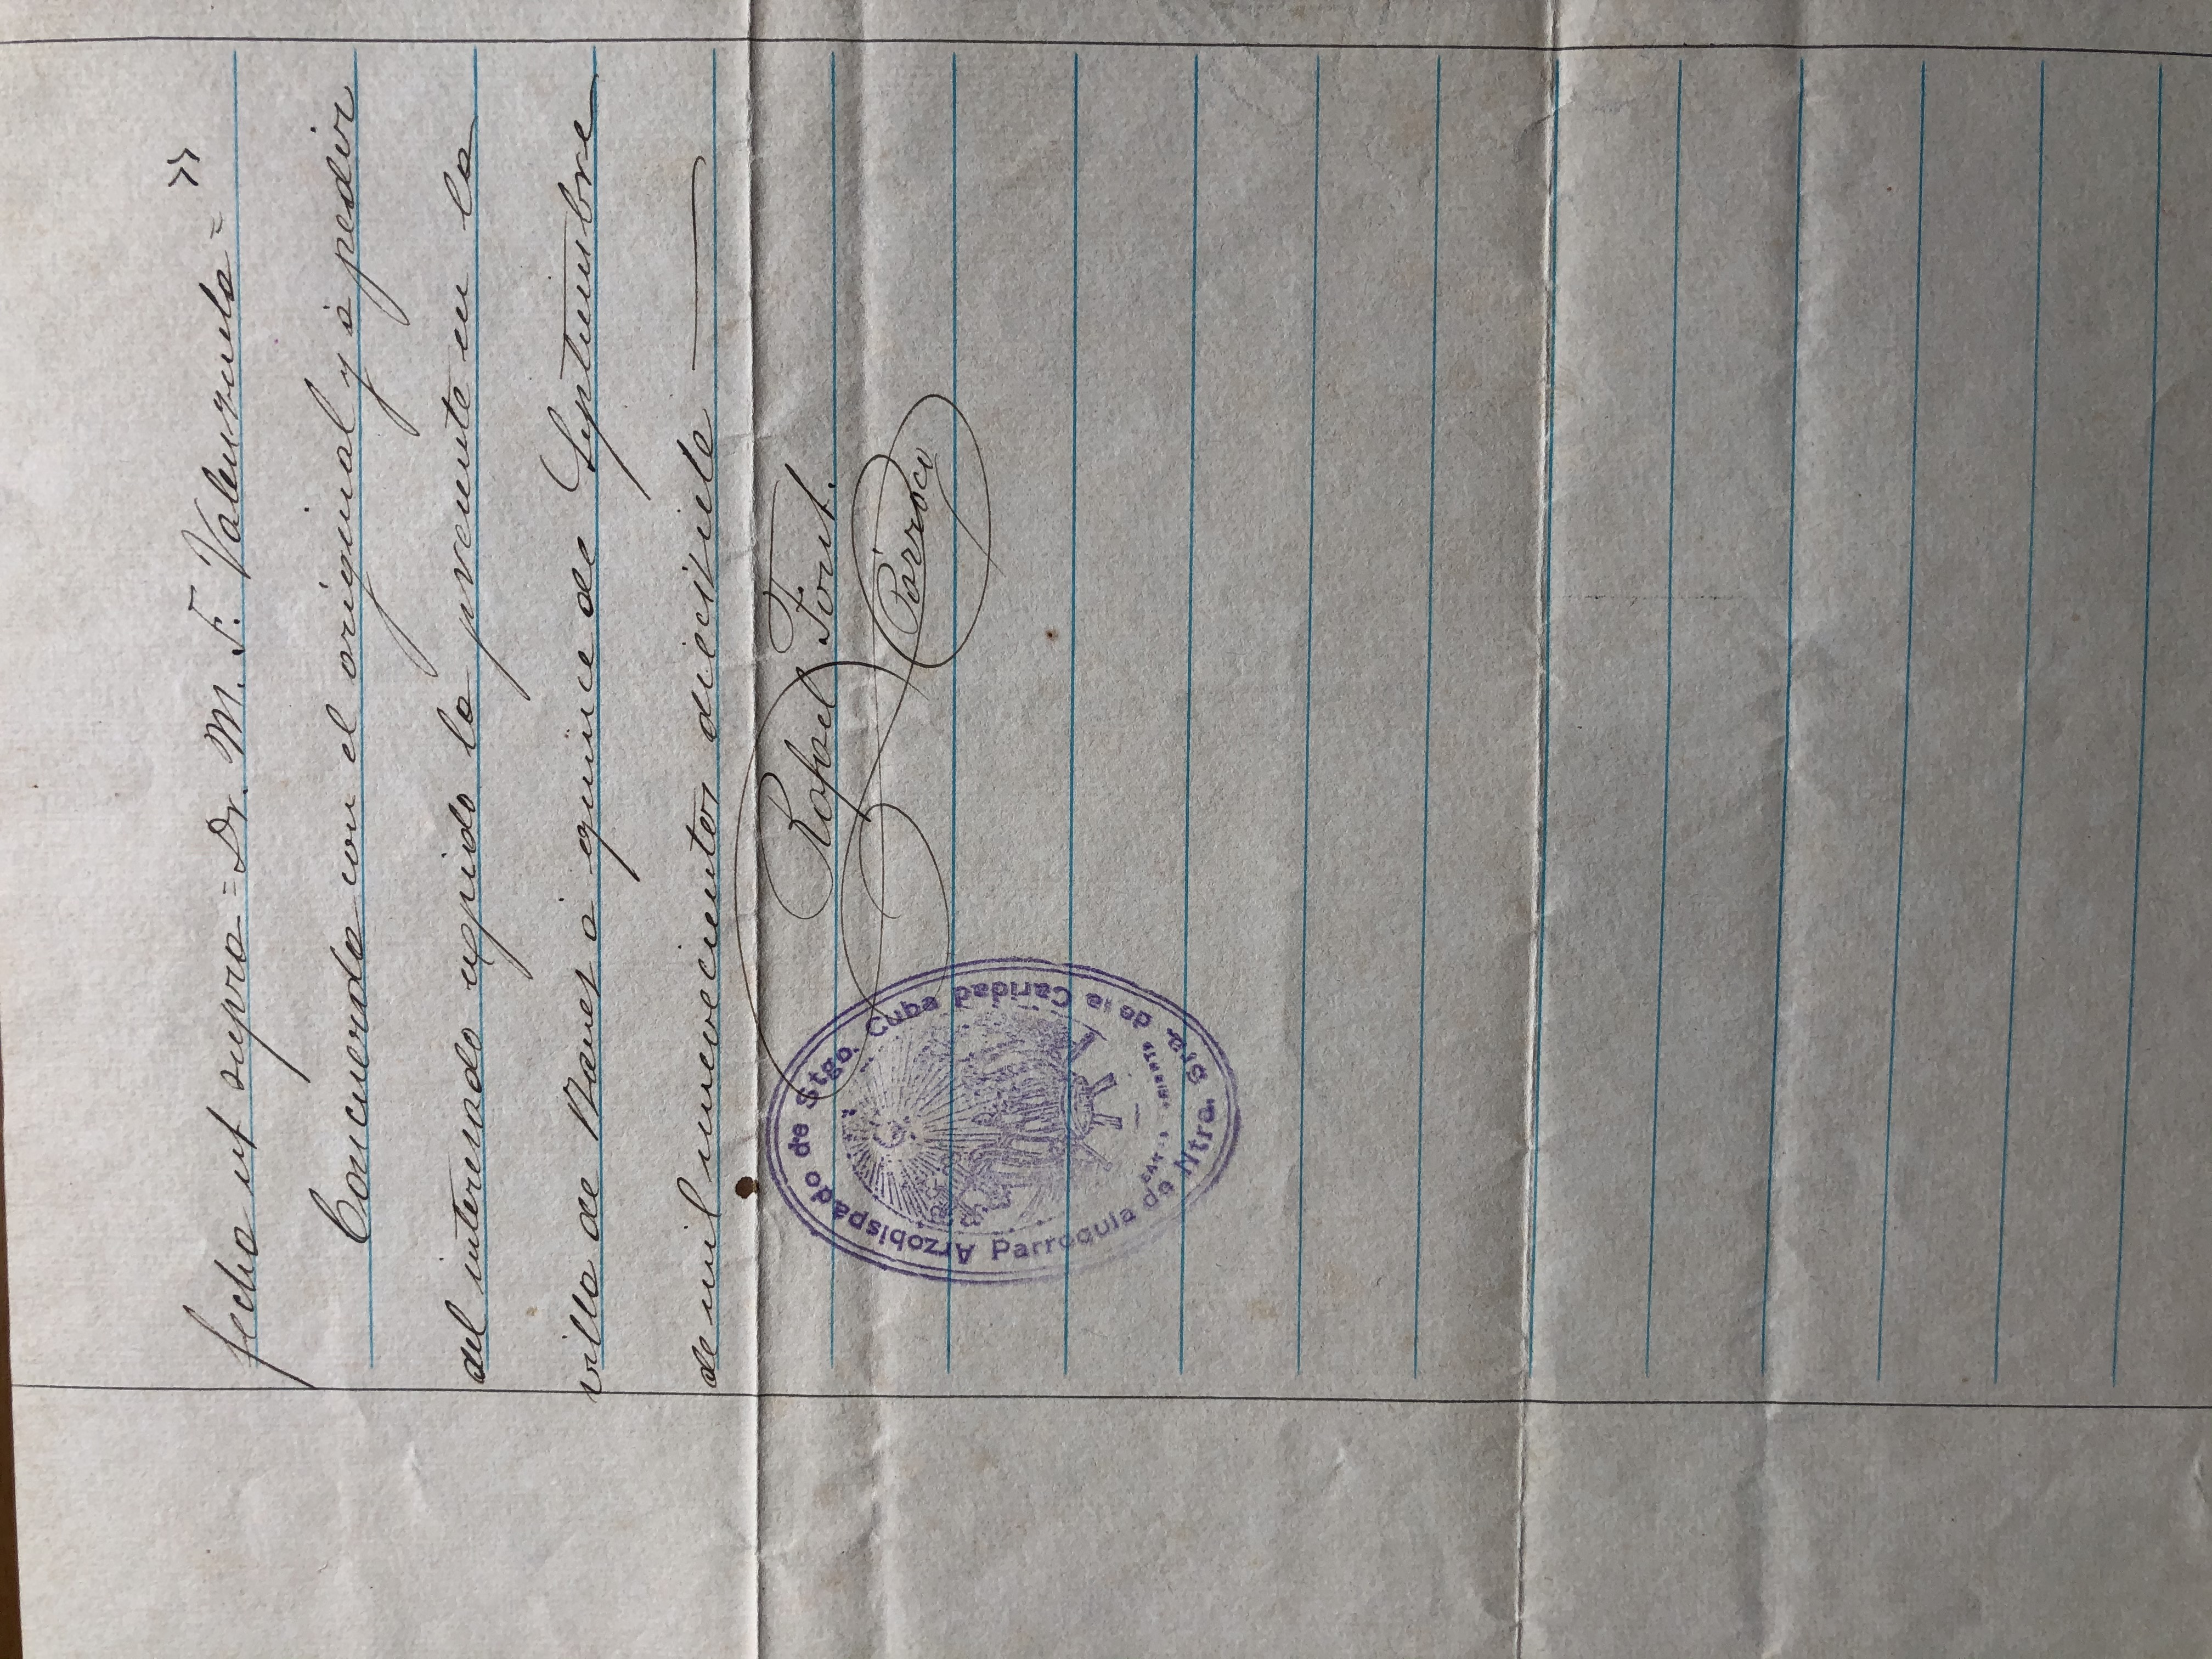 fecha ut supra = Dr. M. F. Valenzuela = »
Concuerda con el original y á pedir
del interesado expido la presente en la
villa de Banes á quince de Septiembre
de mil nuevecientos diecisiete
Rafael Font.
Párroco
Arzobispado de Stgo. Cuba
Parroquia de Ntra. Sra. de la Caridad